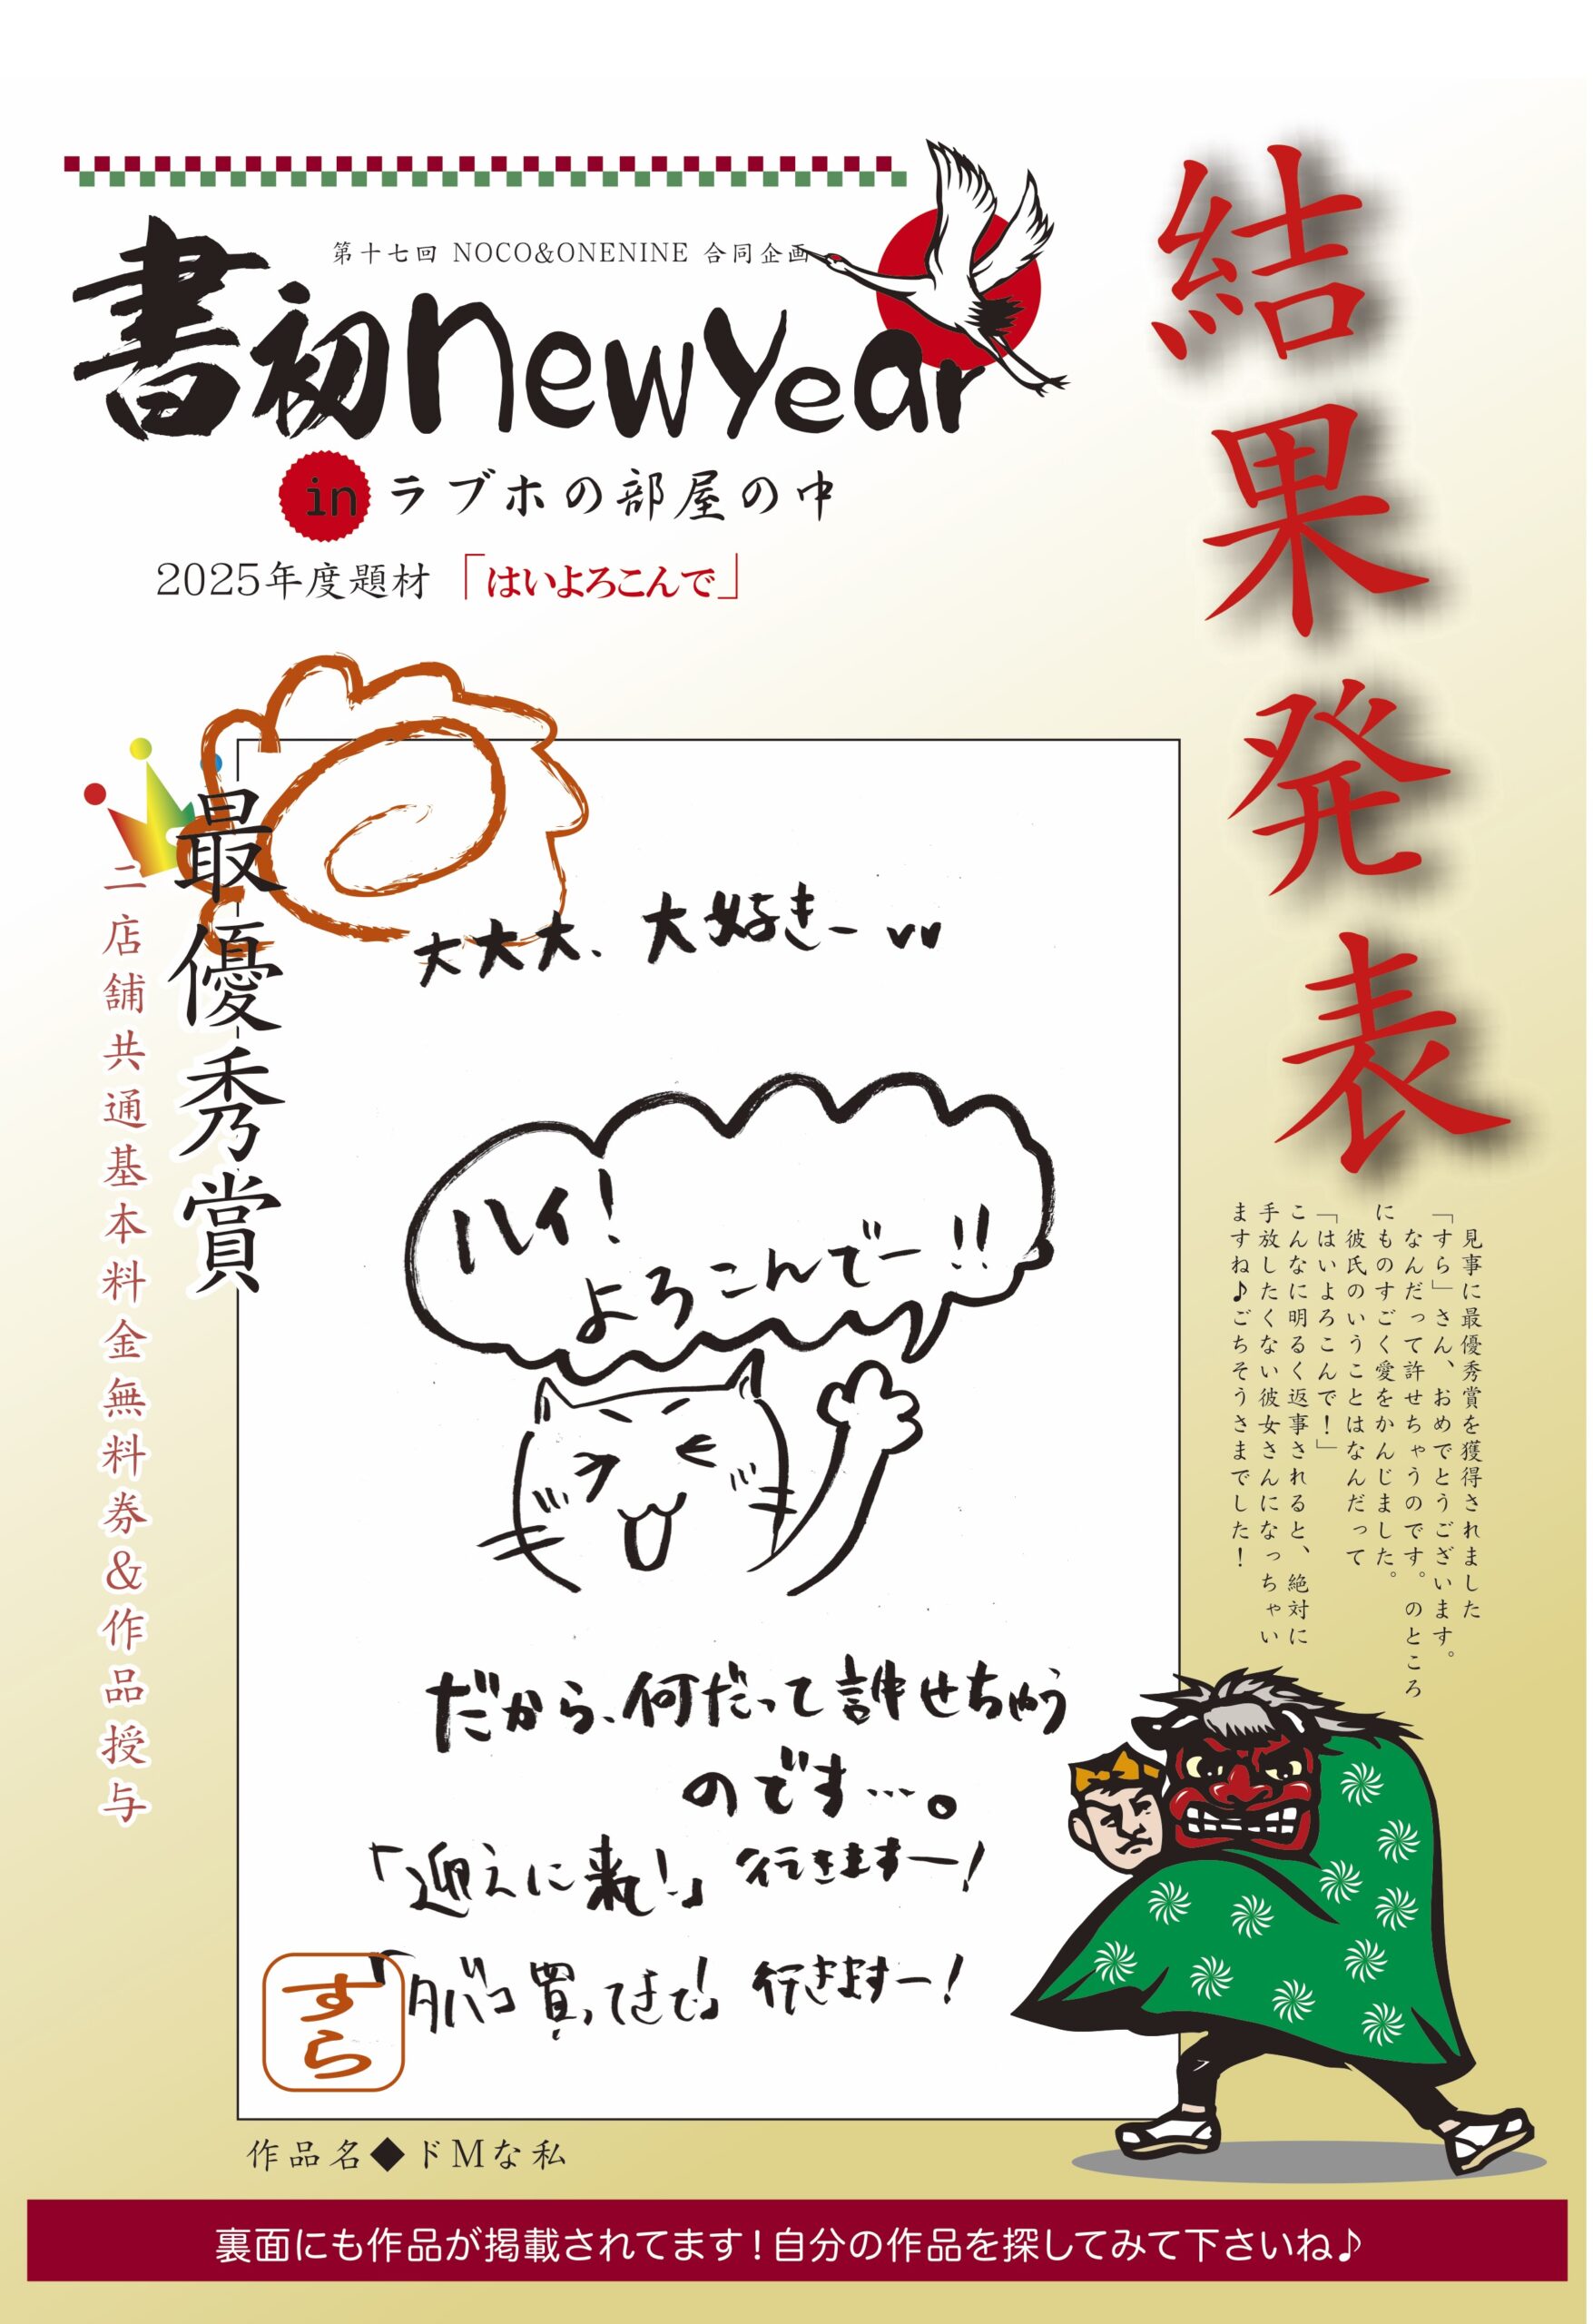 第十七回 NOCO&ONENINE 合同企画
書初newyear
in ラブホの部屋の中
2025年度題材「はいよろこんで」
結果発表
最優秀賞
二店舗共通基本料金無料券&作品授与
大大大、大好きー vv
ハイ!
よろこんでー!!
だから、何だって許せちゃう
のです…。
「迎えに来て!」行きますー!
「タバコ買ってきて!」行きますー!
すら
見事に最優秀賞を獲得されました
「すら」さん、おめでとうございます。
なんだって許せちゃうのです。のところ
にものすごく愛をかんじました。
彼氏のいうことはなんだって
「はいよろこんで!」
こんなに明るく返事されると、絶対に
手放したくない彼女さんになっちゃい
ますね♪ごちそうさまでした!
作品名◆ドMな私
裏面にも作品が掲載されてます!自分の作品を探してみて下さいね♪